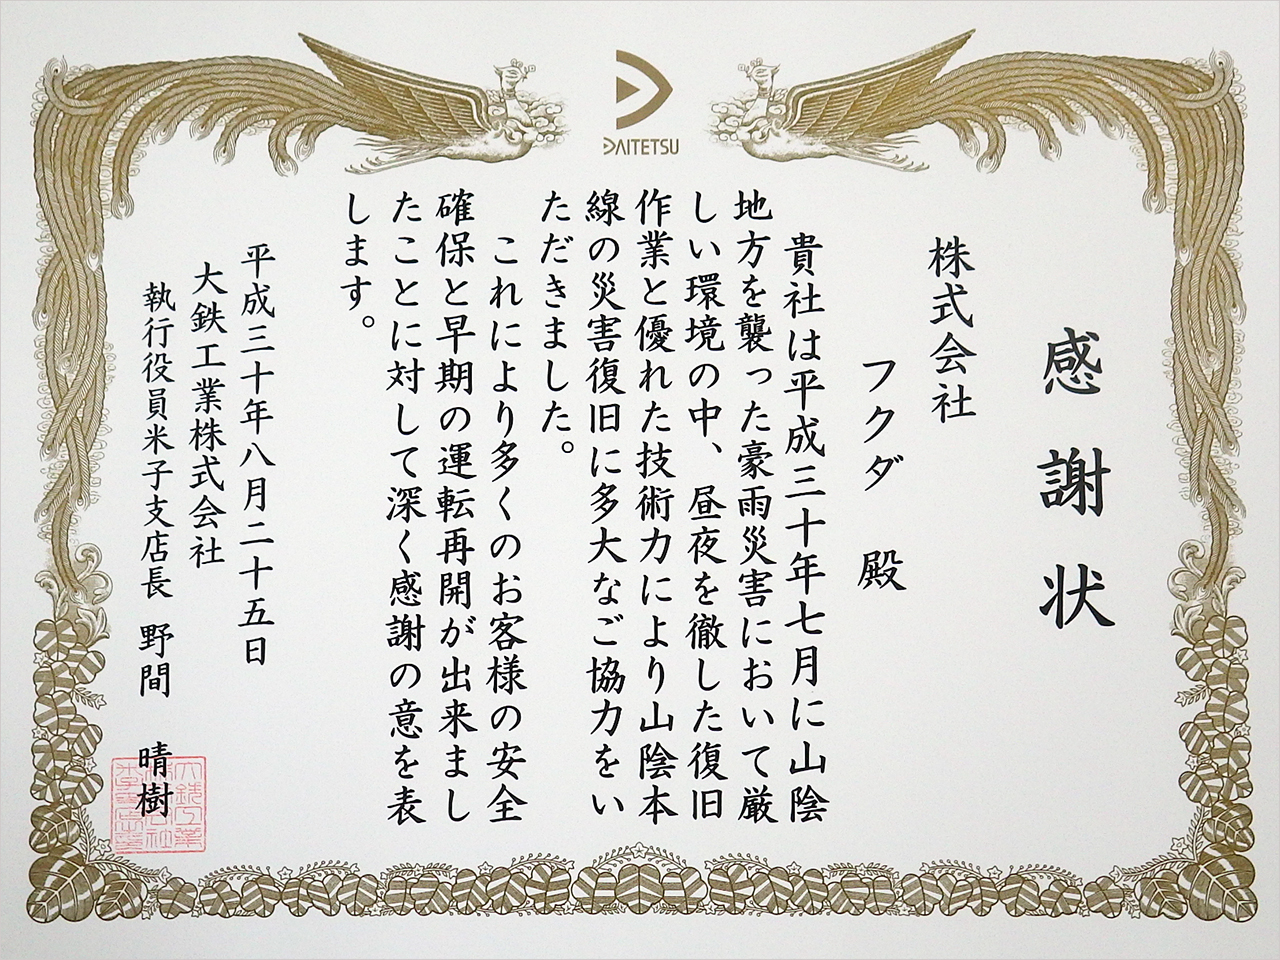 DAITETSU
感謝状
株式会社
フクダ 殿
貴社は平成三十年七月に山陰
地方を襲った豪雨災害において厳
しい環境の中、昼夜を徹した復旧
作業と優れた技術力により山陰本
線の災害復旧に多大なご協力をい
ただきました。
これにより多くのお客様の安全
確保と早期の運転再開が出来まし
たことに対して深く感謝の意を表
します。
平成三十年八月二十五日
大鉄工業株式会社
執行役員米子支店長 野間 晴樹